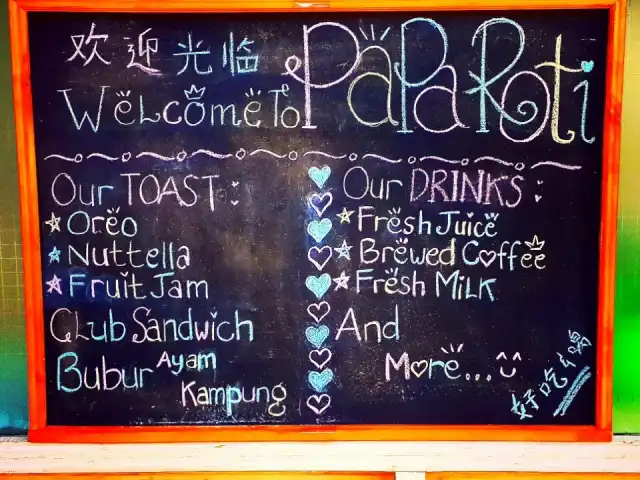 欢迎光临
Welcome To PaPa Roti
Our TOAST:
Oreo
Nuttella
Fruit Jam
Club Sandwich
Bubur Ayam Kampung
Our DRINKS:
Fresh Juice
Brewed Coffee
Fresh Milk
And
More...
好吃好喝